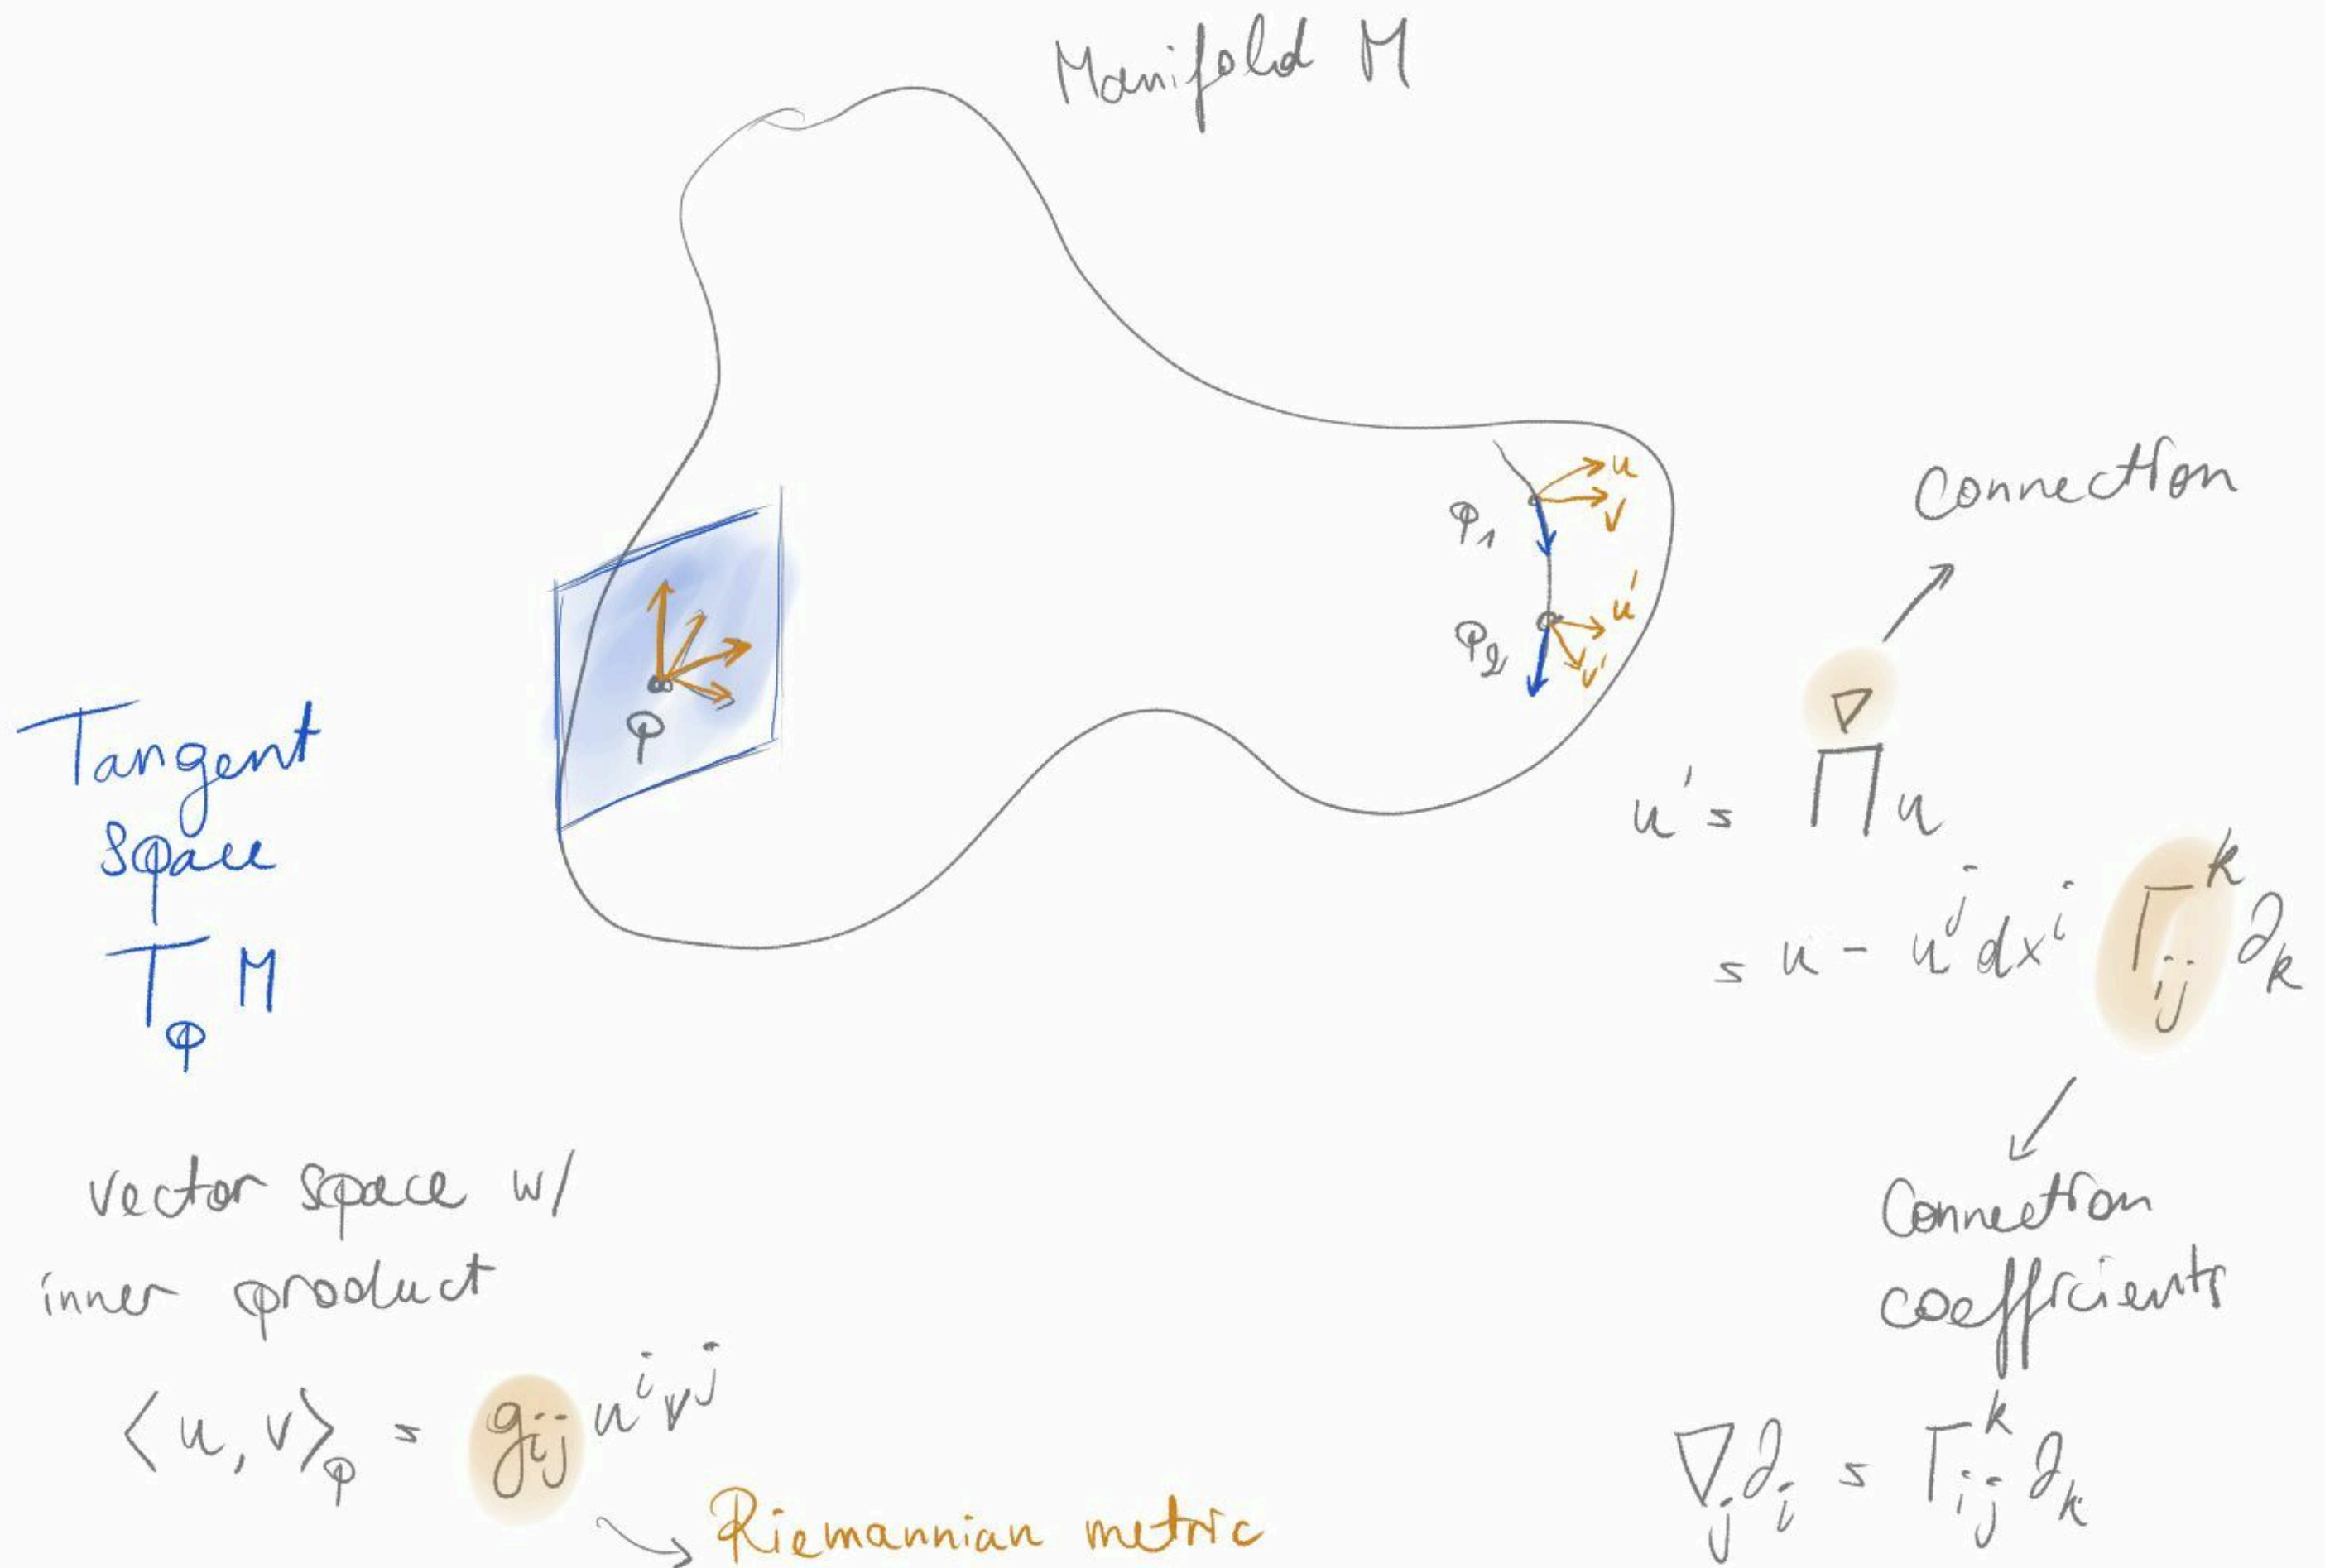 Manifold M
u
v
p₁
u'
p₂
v'
p
Connection
∇
u' = Π u
= u - uʲ dxⁱ Γᵢⱼᵏ ∂ₖ
Connection
coefficients
∇ⱼ∂ᵢ = Γᵢⱼᵏ ∂ₖ
Tangent
Space
TₚM
vector space w/
inner product
⟨u, v⟩ₚ = gᵢⱼ uⁱvʲ
Riemannian metric